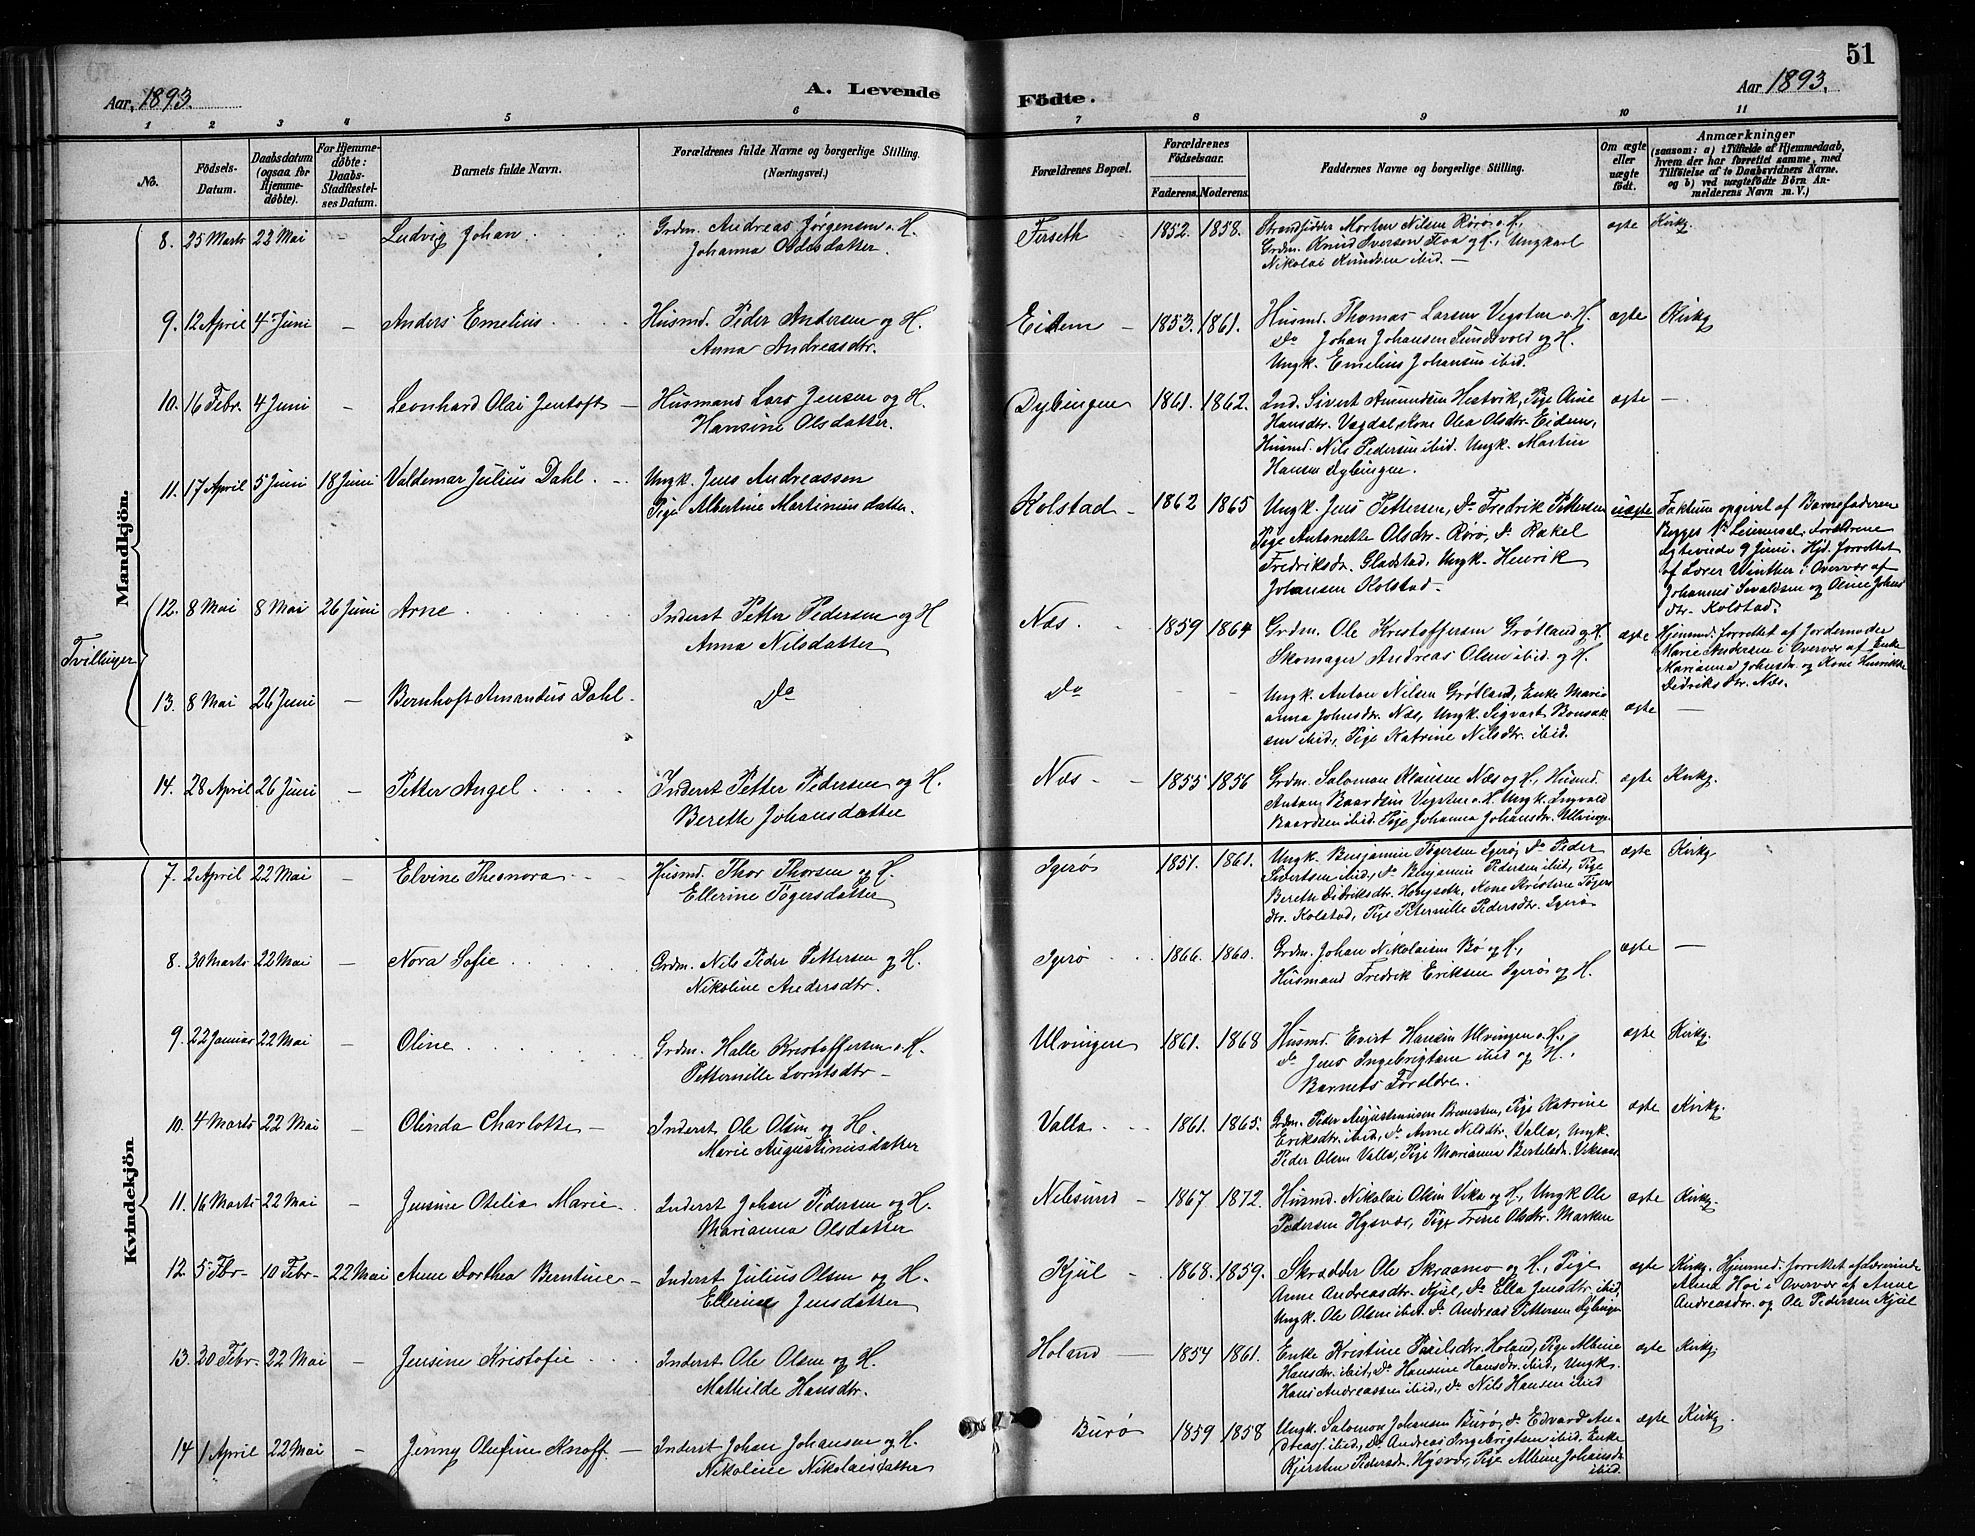 51
Aar, 1893.
A. Levende
Födte.
Aar 1893.
1 2 3 4 5 6 7 8 9 10 11
No.
Födsels-Datum.
Daabsdatum (ogsaa for Hjemmedøbte).
For Hjemmedøbte: Daabs-Stadfæstelses Datum.
Barnets fulde Navn.
Forældrenes fulde Navne og borgerlige Stilling.
(Næringsvei.)
Forældrenes Bopæl.
Forældrenes Födselsaar.
Faderens. Moderens.
Faddernes Navne og borgerlige Stilling.
Om ægte eller uægte födt.
Anmærkninger
(saasom: a) i Tilfælde af Hjemmedaab, hvem der har forrettet samme, med Tilföielse af to Daabsvidners Navne. og b) ved uægtefödte Börn Anmelderens Navn m. V.)
Mandkjön.
8. 25 Marts 22 Mai - Ludvig Johan
Grdm. Andreas Jørgensen o. H.
Johanna Olsdatter.
Ferseth 1852. 1858.
Strandsidder Morten Nilsen Rørø o. H.,
Grdm. Knud Iversen Floa og H., Ungkarl
Nikolai Knudsen ibid. -
ægte Kirkg.
9. 12 April 4 Juni - Anders Emelius
Husmd. Peder Andersen og H.
Anna Andreasdtr.
Eidem - 1853. 1861.
Husmd. Thomas Larsen Vegsten o. H.
Do Johan Johansen Sundsvold og H.
Ungk. Emelius Johansen ibid.
ægte Kirkg
10. 16 Febr. 4 Juni - Leonhard Olai Jentoft -
Husmand Lars Jensen og H.
Hansine Olsdatter.
Dybingen 1861. 1862.
Ind. Sivert Amundsen Hestvik, Pige Oline
Hansdtr. Vagdal, Kone Olea Olsdtr. Eidem,
Husmd. Nils Pedersen ibid. Ungk. Martin
Hansen Dybingen.
ægte -
11. 17 April 5 Juni 18 Juni Valdemar Julius Dahl. -
Ungk. Jens Andreassen
Pige Albertine Martinusdatter.
Kolstad - 1862 1865
Ungk. Jens Pettersen, Do Fredrik Pettersen
Pige Antonette Olsdtr. Rørø, Do Rakel
Fredriksdtr. Gladstad, Ungk. Henrik
Johansen Kolstad. -
uægte
Faktum opgivet af Barnefaderen
Begges No Leiermaal. Forældrene
ægteviede 9 Juni. Hjd. forrettet
af Lærer Winther i Overvær af
Johannes Sivaldsen og Oline Johans
dtr. Kolstad.
Tvillinger
12. 8 Mai 8 Mai 26 Juni Arne
Inderst Petter Pedersen og H
Anna Nilsdatter
Næs. 1859 1864
Grdm. Ole Kristoffersen Grøtland og H.
Skomager Andreas Olsen ibid. og H.
ægte
Hjemmd. forrettet af Jordemoder
Marie Andersen i Overvær af Enke
Marianna Johnsdtr. og Kone Henrikke
Didriksdtr. Næs.
13. 8 Mai 26 Juni - Bernhoft Amandus Dahl.
Do
Do - -
Ungk. Anton Nilsen Grøtland, Enke Mari-
anna Johnsdtr. Næs, Ungk. Sigvart Bonsak
sen ibid, Pige Katrine Nilsdtr. ibid.
ægte -
14. 28 April 26 Juni - Petter Angel
Inderst Petter Pedersen og H.
Berethe Johansdatter
Næs - 1855 1856
Grdm. Salomon Klausen Næs og H., Husmd.
Antoni Baardsen Vegsten o. H. Ungk. Ingvald
Baardsen ibid. Pige Johanna Johansdtr. Ulvingen
ægte Kirkg.
Kvindekjön
7. 2 April 22 Mai - Elvine Theonora
Husmd. Thor Thorsen og H.
Ellerine Tøgersdatter
Igerøs 1851. 1861.
Ungk. Benjamin Tøgersen Igerø, Do Peder
Sivertsen ibid, Do Benjamin Pedersen ibid, Pige
Berethe Didriksdtr. Hongseth, Kone Kristine Tøgers
dtr. Kolstad, Pige Peternille Pedersdtr. Igerø
ægte Kirkg
8. 30 Marts 22 Mai - Nora Sofie
Grdm. Nils Peder Pettersen og H.
Nikoline Andersdtr.
Igerø 1866. 1860.
Grdm. Johan Nikolaisen Bø og H.,
Husmand Fredrik Eriksen Igerø og H.
ægte -
9. 22 Januar 22 Mai - Oline
Grdm. Halle Kristoffersen o. H.
Petternille Lorntsdtr -
Ulvingen 1861. 1868
Husmd. Evert Hansen Ulvingen o. H.,
Do Jens Ingebrigtsen ibid og H.,
Barnets Forældre.
ægte Kirkg.
10. 4 Marts 22 Mai - Olinda Charlotte -
Inderst Ole Olsen og H.
Marie Augustinusdatter
Valla 1861. 1865.
Grdm. Peder Augustinusen Bremsten, Pige Katrine
Eriksdtr. ibid, Do Anne Nilsdtr. Valla, Ungk.
Peder Olsen Valla, Pige Marianna Bertelsdtr. Viksaas
ægte Kirkg.
11. 16 Marts 22 Mai - Jensine Otilia Marie
Inderst Johan Pedersen og H.
Marianna Olsdatter
Nilsund - 1867 1872.
Husmd. Nikolai Olsen Vika og H., Ungk Ole
Pedersen Hysvær, Pige Trine Olsdtr. Marken
ægte Kirkg.
12. 5 Fbr- 10 Febr- 22 Mai Anne Dorthea Berntine -
Inderst Julius Olsen og H.
Ellerine Jensdatter
Kjul - 1868. 1859.
Skrædder Ole Skraamo og H., Pige
Anne Andreasdtr. Kjul, Do Ella Jensdtr. ibid,
Ungk. Ole Olsen ibid. Do Andreas Pettersen Dybingen
ægte
Kirkg. Hjemmd. forrettet af Lærerinde
Anna Hoi i Overvær af Anne
Andreasdtr. og Ole Pedersen Kjul
13. 30 Febr- 22 Mai - Jensine Kristofie
Inderst Ole Olsen og H.
Mathilde Hansdtr.
Holand - 1854 1861.
Enke Kristine Povelsdtr. Holand, Pige Albine
Hansdtr. ibid, Do Hansine Hansdtr. ibid, Ungk.
Hans Andreassen ibid, Do Nils Hansen ibid
ægte Kirkg.
14 1 April 22 Mai - Jenny Olufine Knoff. -
Inderst Johan Johansen og H.
Nikoline Nikolaisdatter
Burø 1859 1858
Ungk. Salomon Johansen Burø, Do Edvard An-
dreass. ibid, Do Andreas Ingebrigtsen ibid. Enke
Kjersten Pedersdtr. Hysvær, Pige Albine Johansdtr
ibid.
ægte Kirkg.